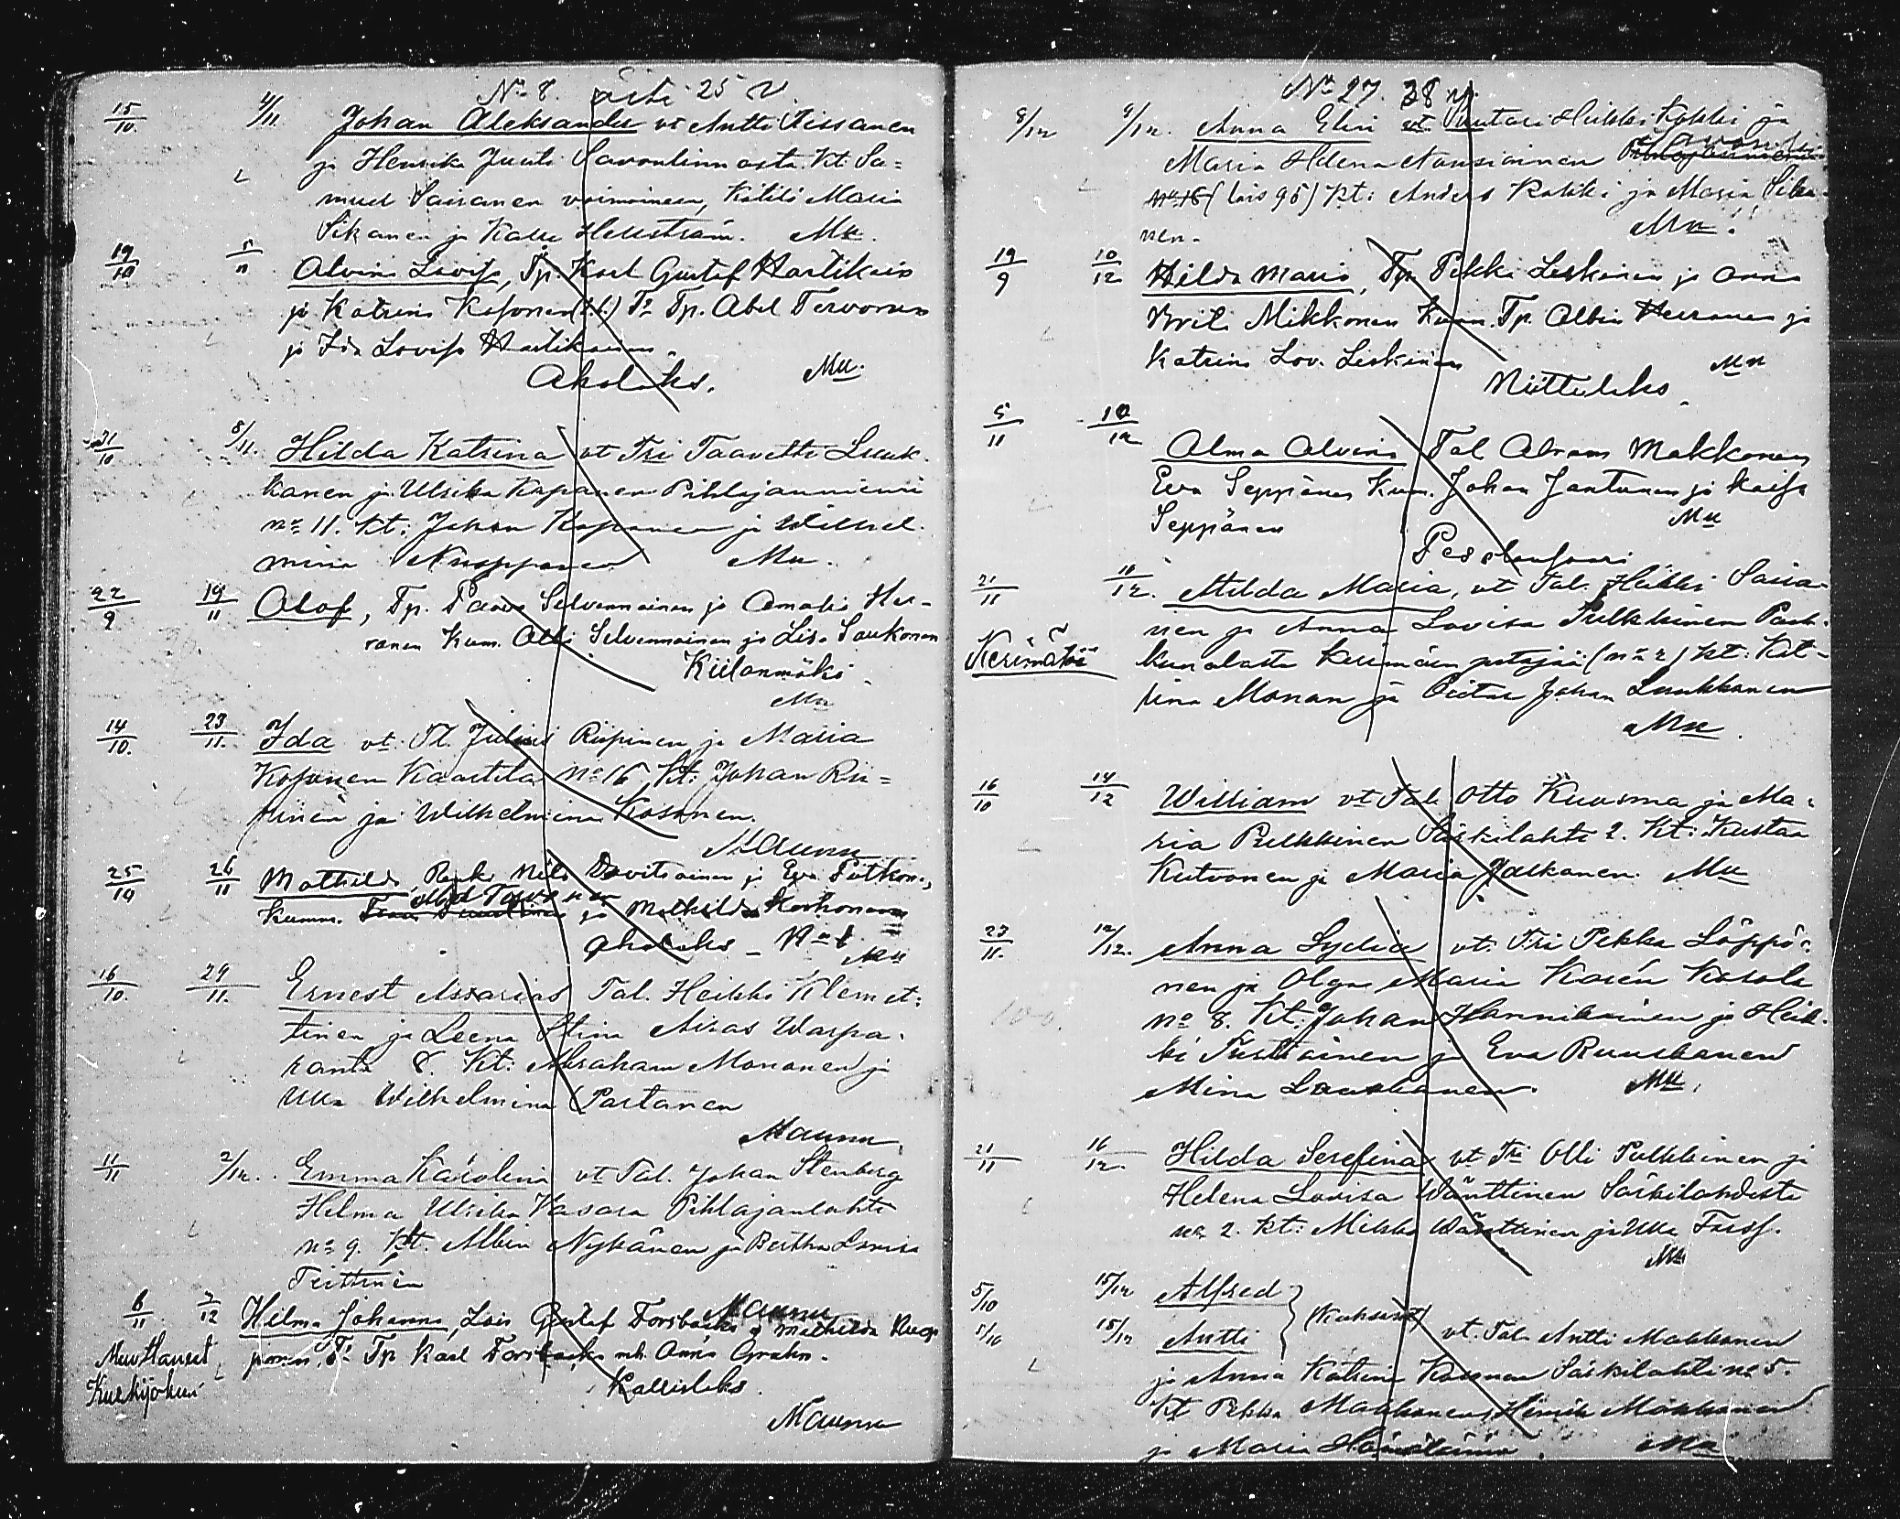 No 8. äiti 25 v.
15/10 4/11 Johan Aleksander vt Antti Nissanen
ja Henrika Juuti Savonlinnasta. Kt. Sa=
muel Sairanen vaimoineen, Kätilö Maria
Sikanen ja Kalle Hellström. Mu.
19/10 5/11 Alvina Lovisa, Tp. Karl Gustaf Hartikain
ja Katrina Kosonen Tp. Abel Tervonen
ja Ida Lovisa Hartikainen
Aholaks. Mu.
31/10 8/11. Hilda Katrina vt Tri Taavetti Luuk-
kanen ja Ulrika Kapanen Pihlajanniemi
no 11. kt: Johan Kapanen ja Wilhel-
mina Nusppanen Mu.
22/9 19/11 Olof, Tp. Paavo Selvennainen ja Amalia Her-
ranen Kum. Olli Selvennainen ja Lisa Laukonen
Kiilanmäki
Mu
14/10. 23/11. Ida vt. Tl. Julius Riipinen ja Maria
Kosonen Kaartila No 16, Kt: Johan Rii=
pinen ja Wilhelmina Kosonen.
Maunu
25/10 26/11 Mathilda, Nils Davitsainen ja Eva Piitkon.,
Kumm. ja Mathilda Korhonen
Aholaks - No 1.
Mu
16/10. 29/11. Ernest Assarias Tal. Heikki Klemet=
tinen ja Leena Stina Airas Warpa-
ranta 8. Kt: Abraham Mononen ja
Ulla Wilhelmina Partanen
Maunu
11/11 2/12. Emma Karolina vt Tal. Johan Stenberg
Helma Ulrika Vasara Pihlajanlahti
no 9. Kt. Albin Nykänen ja Bertha Lovisa
Teittinen
Maunu
6/11 7/12 Hilma Johanna, Lois Gustaf Forsbacka ja Mathilda Kup
ponen, Tp Karl Forsbacka
Kallislaks.
Muuttaneet
Kurkijokeen
Maunu
No 27. 38 v.
8/12 9/12. Anna Elin vt Suutari Heikki Kokki ja
Maria Helena Nousiainen
No 16 (lois 95) kt: Anders Kokki ja Maria Sika-
nen. Mu.
19/9 10/12 Hilda Maria, Tp. Pekka Leskinen ja Anna
Brita Mikkonen Kum. Tp. Albin Herranen ja
Katrina Lov. Leskinen Mu
Niittylaks
5/11 10/12 Alma Alvina Tal Abram Makkonen
Eva Seppänen Kum. Johan Jantunen ja Kaisa
Seppänen Mu
21/11 11/12. Hilda Maria, vt Tal. Heikki Saira-
nen ja Anna Lovisa Pulkkinen Pash-
kunalasta Kerimäen pitäjää (no 2) kt: Kat-
rina Monan ja Pietar Johan Luukkanen
Kerimäki
Mu
16/10 14/12 William vt Tal. Otto Kuosma ja Ma-
ria Pulkkinen Särkilahti 2. Kt: Kustaa
Kutvonen ja Maria Jalkanen. Mu
23/11. 12/12. Anna Lydia vt. Tri Pekka Löppö-
nen ja Olga Maria Karén Kosola
no 8. Kt: Johan Hannikainen ja Heik-
ki Tiusainen ja Eva Ruuskanen
Mina Laukkanen. Mu.
100.
21/11 16/12. Hilda Serefina vt Tri Olli Pulkkinen ja
Helena Lovisa Wänttinen Särkilahdesta
no 2. kt: Mikko Wänttinen ja Ulla Tuss.
Mu
5/10 15/12 Alfred
5/10 15/12 Antti (kaksoset) vt. Tal. Antti Makkonen
ja Anna Katrina Kosonen Särkilahti no 5.
Kt Pekka Makkonen, Henrik Makkonen
ja Maria Mu